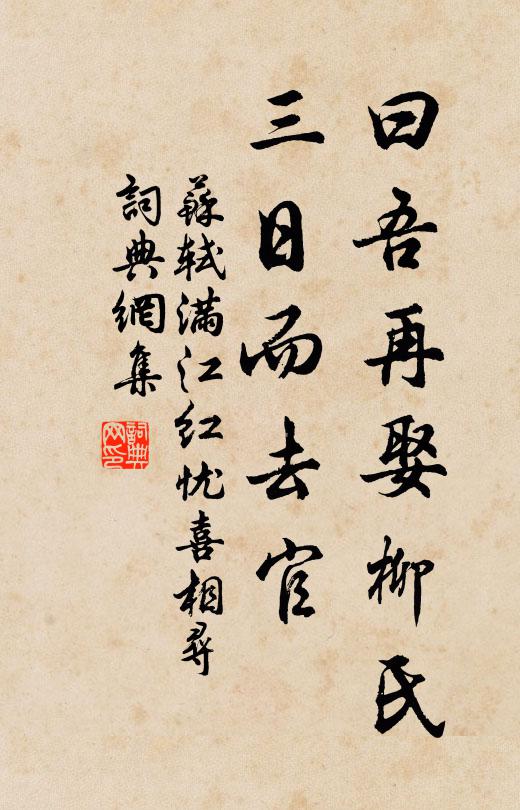 曰吾再娶柳氏
三日而去官
蘇軾滿江红忧喜相尋
詞典網集
詞典
网印